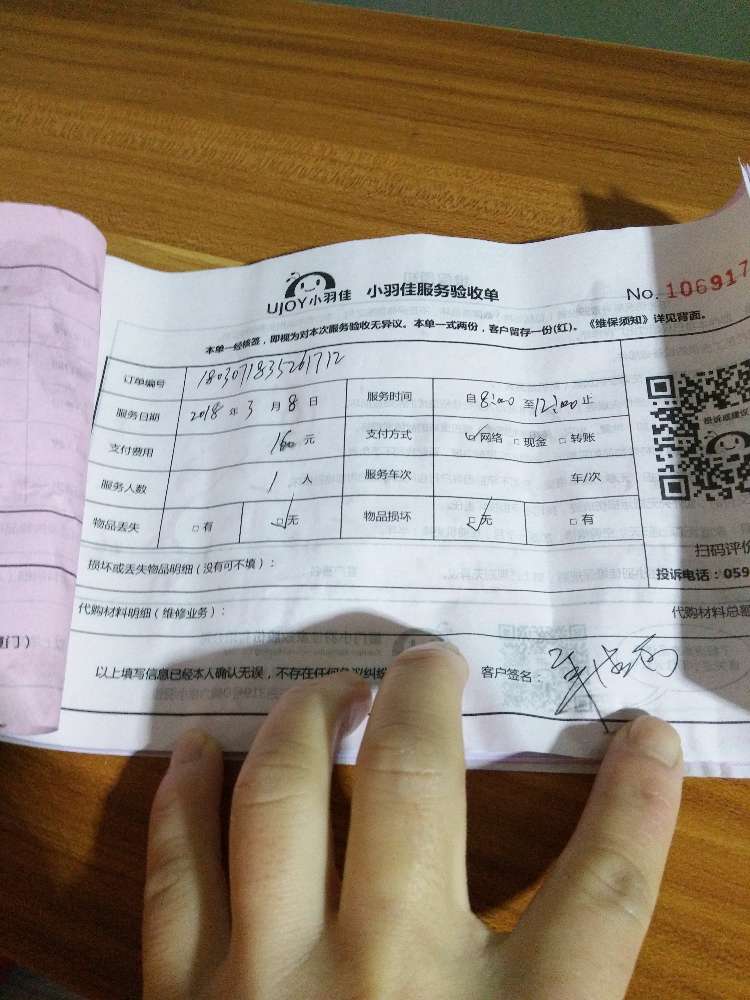 UJOY小羽佳 小羽佳服务验收单 No. 106917
本单一经核签，即视为对本次服务验收无异议。本单一式两份，客户留存一份(红)。《维保须知》详见背面。
订单编号 1803071835261712
服务日期 2018 年 3 月 8 日 服务时间 自 8:00 至 12:00 止
支付费用 160 元 支付方式 ☑网络 □现金 □转账
服务人数 1 人 服务车次 车/次
物品丢失 □有 ☑无 物品损坏 ☑无 □有
投诉或建议
扫码评价
损坏或丢失物品明细（没有可不填）：
投诉电话：059
代购材料明细（维修业务）： 代购材料总额
以上填写信息已经本人确认无误，不存在任何争议纠纷 客户签名：
厦门）